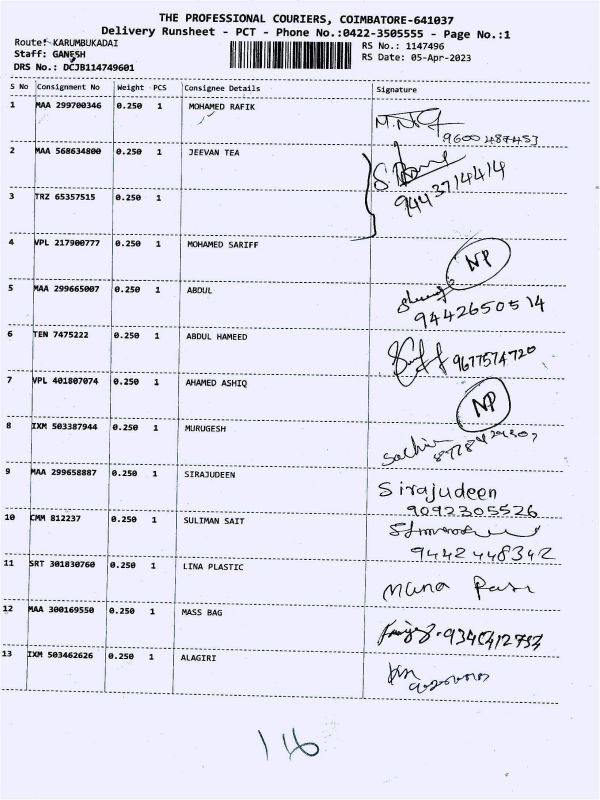 THE PROFESSIONAL COURIERS, COIMBATORE-641037
Delivery Runsheet - PCT - Phone No.:0422-3505555 - Page No.:1
Route: KARUMBUKADAI
RS No.: 1147496
Staff: GANESH
RS Date: 05-Apr-2023
DRS No.: DCJB114749601
S No Consignment No Weight PCS Consignee Details Signature
1 MAA 299700346 0.250 1 MOHAMED RAFIK
9600487453
2 MAA 568634800 0.250 1 JEEVAN TEA
9443714414
3 TRZ 65357515 0.250 1
4 VPL 217900777 0.250 1 MOHAMED SARIFF NP
5 MAA 299665007 0.250 1 ABDUL
9442650514
6 TEN 7475222 0.250 1 ABDUL HAMEED 9677574720
7 VPL 401807074 0.250 1 AHAMED ASHIQ NP
8 IXM 503387944 0.250 1 MURUGESH
9 MAA 299658887 0.250 1 SIRAJUDEEN Sirajudeen
9092305526
10 CMM 812237 0.250 1 SULIMAN SAIT
9442448342
11 SRT 301830760 0.250 1 LINA PLASTIC
12 MAA 300169550 0.250 1 MASS BAG
13 IXM 503462626 0.250 1 ALAGIRI